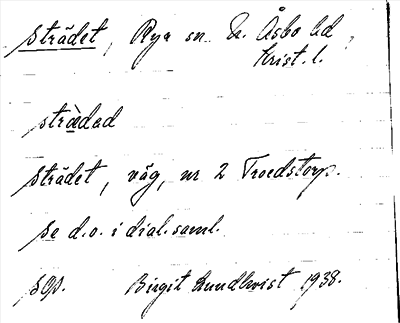 Strädet, Rya sn. N. Åsbo hd
Krist. l.
strädad
Strädet, väg, nr 2 Troedstorp.
se d.o. i dial.saml.
sop. Birgit Lundkvist 1938.